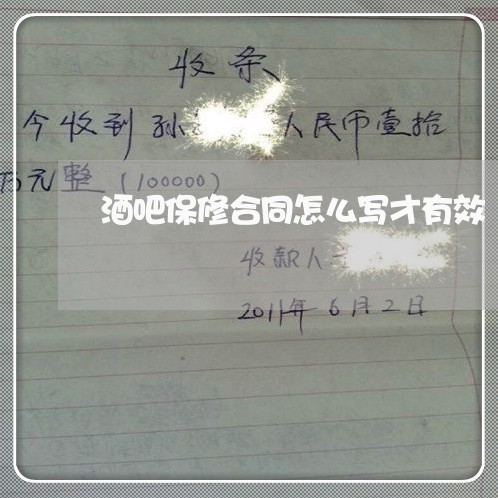 收条
今收到孙 人民币壹拾
万元整（100000）
酒吧保修合同怎么写才有效
收款人
2011年6月2日